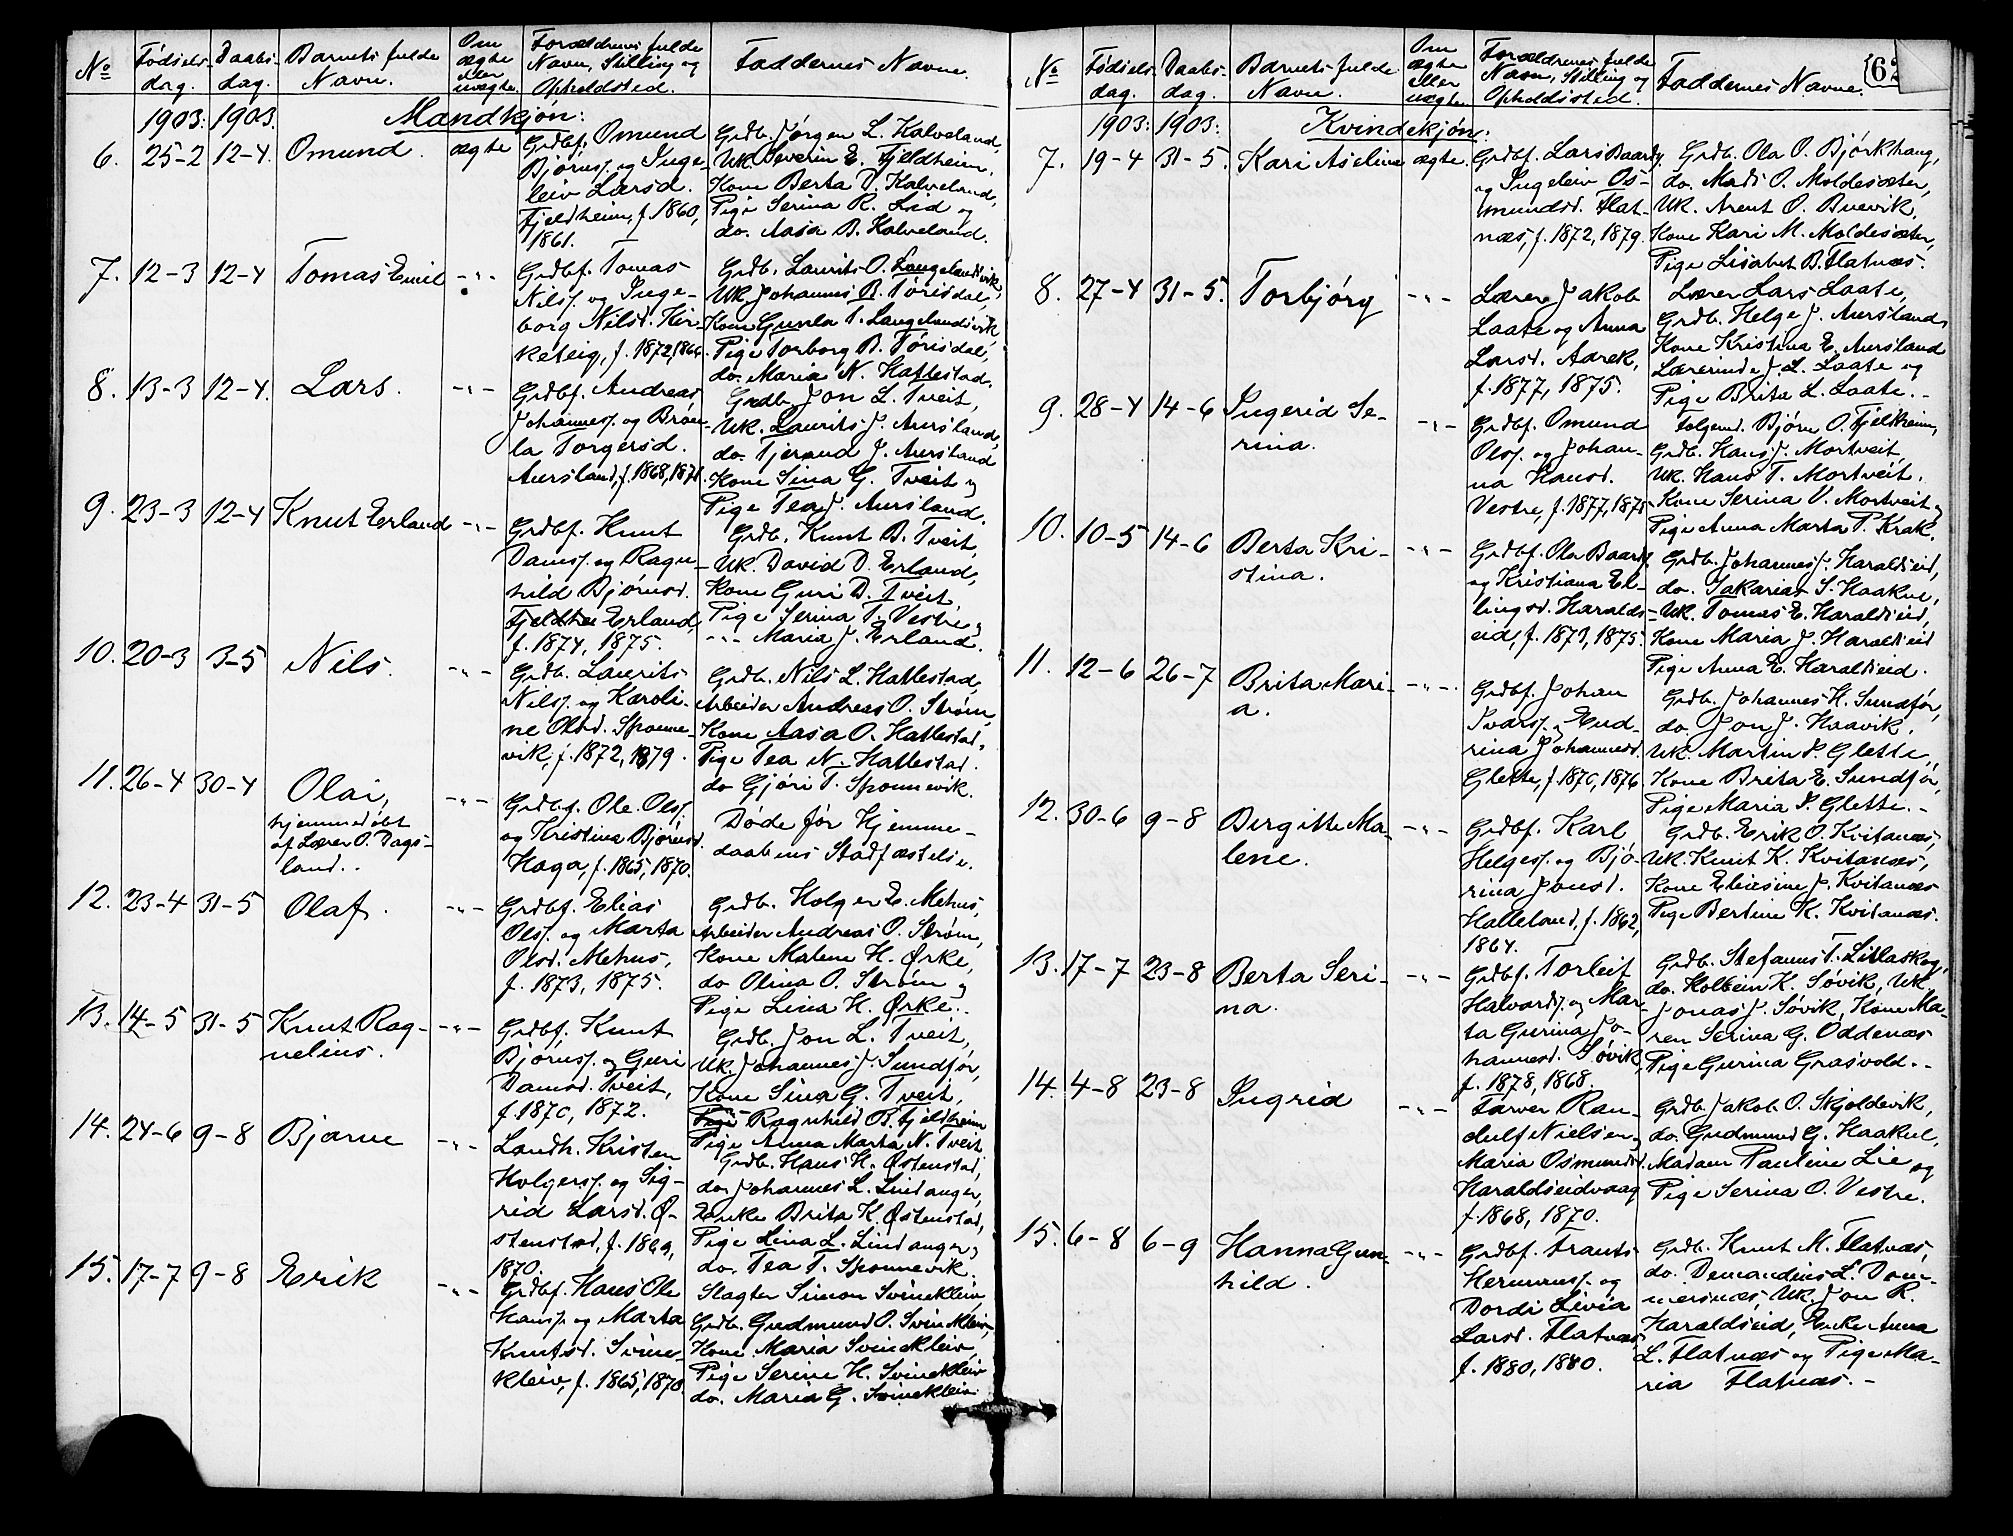 No
Fødsels-
dag.
Daabs-
dag.
Barnets fulde
Navn.
Om
ægte
eller
uægte.
Forældrenes fulde
Navn, Stilling og
Opholdssted.
Faddernes Navne.
1903: 1903.
Mandkjøn:
6. 25-2 12-4 Omund. ægte
Grdbf. Omund
Bjørnss. og Inge-
leiv Larsd.
Fjeldheim, f. 1860,
1861.
Grdb. Jørgen L. Kalveland,
Uk. Severin E. Fjeldheim,
Kone Berta D. Kalveland,
Pige Serina R. Lid og
do. Aasa B. Kalveland.
7. 12-3 12-4 Tomas Emil -"-
Grdbf. Tomas
Nilss. og Inge-
borg Nilsd. Kir-
keteig, f. 1872, 1866.
Grdb. Laurits O. Langelandsvik,
Uk. Johannes B. Torisdal,
Kone Gunla T. Langelandsvik,
Pige Torborg B. Torisdal,
do. Maria N. Hattestad.
8. 13-3 12-4. Lars. -"-
Grdbf. Andreas
Johanness. og Brøn-
la Torgersd.
Aursland, f. 1868, 1871.
Grdb. Jon L. Tveit,
Uk. Laurits J. Aursland,
do. Tjerand J. Aursland
Kone Sina G. Tveit og
Pige Tea J. Aursland.
9. 23-3 12-4 Knut Erland -"-
Grdbf. Knut
Danss. og Ragn-
hild Bjørnsd.
Erland,
f. 1874, 1875.
Grdb. Knut B. Tveit,
Uk. David D. Erland,
Kone Guri D. Tveit,
Pige Serina T. Vestre,
-"- Maria J. Erland.
10. 20-3 3-5 Nils. -"-
Grdb. Laurits
Nilss. og Karoli-
ne Olsd. Sponne-
vik, f. 1872, 1879.
Grdb. Nils L. Hattestad,
Arbeider Andreas O. Strøm,
Kone Aasa O. Hattestad,
Pige Tea N. Hattestad.
do Gjøri T. Sponnevik.
11. 26-4 30-4 Olai,
hjemmedøbt
af Lærer O. Dags-
land..
-"-
Grdbf. Ole Olss.
og Kristina Bjørnsd.
Haga, f. 1865, 1870.
Døde før Hjemme-
daabens Stadfæstelse.
12. 23-4 31-5 Olaf. -"-
Grdbf. Elias
Olss. og Marta
Olsd. Mehus,
f. 1873, 1875.
Grdb. Holger E. Mehus,
Arbeider Andreas O. Strøm,
Kone Malene H. Ørke,
do Olina O. Strøm og
Pige Lina H. Ørke.
13. 14-5 31-5 Knut Rag-
nelius.
-"-
Grdbf. Knut
Bjørnss. og Guri
Damsd. Tveit,
f. 1870, 1872.
Grdb. Jon L. Tveit,
Uk. Johannes J. Sundfør,
Kone Sina G. Tveit,
Ragnhild B. Fjeldheim
Pige Anna Marta N. Tveit
14. 24-6 9-8 Bjarne -"-
Landh. Kristen
Holgerss. og Sig-
rid Larsd. Ø-
stenstad, f. 1869,
1870.
Grdb. Hans H. Østenstad,
do. Johannes L. Lindanger,
Enke Brita K. Østenstad,
Pige Lina L. Lindanger,
do. Tea T. Sponnevik
15. 17-7 9-8 Erik -"-
Grdbf. Hans Ole
Hanss. og Marta
Knutsd. Svine-
kleiv, f. 1865, 1870.
Slagter Simon Svinekleiv,
Grdb. Gudmund O. Svinekleiv,
Kone Maria Svinekleiv,
Pige Serine H. Svinekleiv
do. Maria G. Svinekleiv.
No
Fødsels-
dag.
Daabs-
dag.
Barnets fulde
Navn.
Om
ægte
eller
uægte.
Forældrenes fulde
Navn, Stilling og
Opholdssted.
Faddernes Navne.
62
1903: 1903:
Kvindekjøn:
7. 19-4 31-5. Kari Aseline ægte.
Grdbf. Lars Baards.
og Ingeleiv Os-
mundsd. Flat-
næs, f. 1872, 1879.
Grdb. Ola O. Bjørkhaug,
do. Mads O. Moldesæter,
Uk. Arent O. Buevik,
Kone Kari M. Moldesæter,
Pige Lisabet B. Flatnæs.
8. 27-4 31-5. Torbjørg -"-
Lærer Jakob
Laate og Anna
Larsd. Aarek,
f. 1877, 1875.
Lærer Lars Laate,
Grdb. Helge J. Aursland,
Kone Kristina E. Aursland
Lærerinde J. L. Laate og
Pige Brita L. Laate.
9. 28-4 14-6 Ingerid Se-
rina.
-"-
Grdbf. Omund
Olss. og Johan-
na Hansd.
Vestre, f. 1877, 1875
Folgemd. Bjørn O. Fjeldheim,
Grdb. Hans J. Mortveit,
Uk. Hans T. Mortveit.
Kone Serina V. Mortveit og
Pige Anna Marta P. Krak.
10. 10-5 14-6 Berta Kri-
stina.
-"-
Grdbf. Ola Baards.
og Kristiana El-
lingsd. Haralds-
eid, f. 1871, 1875.
Grdb. Johannes J. Haraldseid,
do. Sakarias S. Haakul,
Uk. Tomas E. Haraldseid,
Kone Maria J. Haraldseid
Pige Anna E. Haraldseid.
11. 12-6 26-7 Brita Mari-
a.
-"-
Grdbf. Johan
Ivarss. og End-
rina Johannesd.
Glette, f. 1870, 1876
Grdb. Johannes H. Sundfør,
do. Jon J. Haavik,
Uk. Martin I. Glette,
Kone Brita E. Sundfør,
Pige Maria I. Glette.
12. 30-6 9-8 Birgitte Ma-
lene.
-"-
Grdbf. Karl
Helgess. og Bjø-
rina Jonsd.
Halleland, f. 1862,
1864.
Grdb. Erik O. Kvitanæs,
Uk. Knut K. Kvitanæs,
Kone Elisine J. Kvitanæs
Pige Bertine K. Kvitanæs.
13. 17-7 23-8 Berta Seri-
na.
-"-
Grdbf. Torleif
Halvards. og Mar-
ta Gurina Jo-
hannesd. Søvik,
f. 1878, 1868.
Grdb. Stefanus T. Litlaskog,
do. Kolbein K. Søvik, Uk.
Jonas J. Søvik, Kone Ma-
ren Serina G. Oddenæs
Pige Gurina Grasvold.
14. 4-8 23-8 Ingrid -"-
Farver Ran-
dulf Nielsen og
Maria Osmundsd.
Haraldseidvaag
f. 1868, 1870.
Grdb. Jakob O. Skjoldevik,
do. Gudmund G. Haakul,
Madam Pauline Lie og
Pige Serina O. Vestre.
15. 6-8 6-9 Hanna Gun-
hild.
-"-
Grdbf. Frants
Hermanss. og
Dordi Livia
Larsd. Flatnæs
f. 1880, 1880.
Grdb. Knut M. Flatnæs,
do. L. Dom-
mersnæs, Uk. Jon R.
Haraldseid, Enke Anna
L. Flatnæs og Pige Ma-
ria Flatnæs.